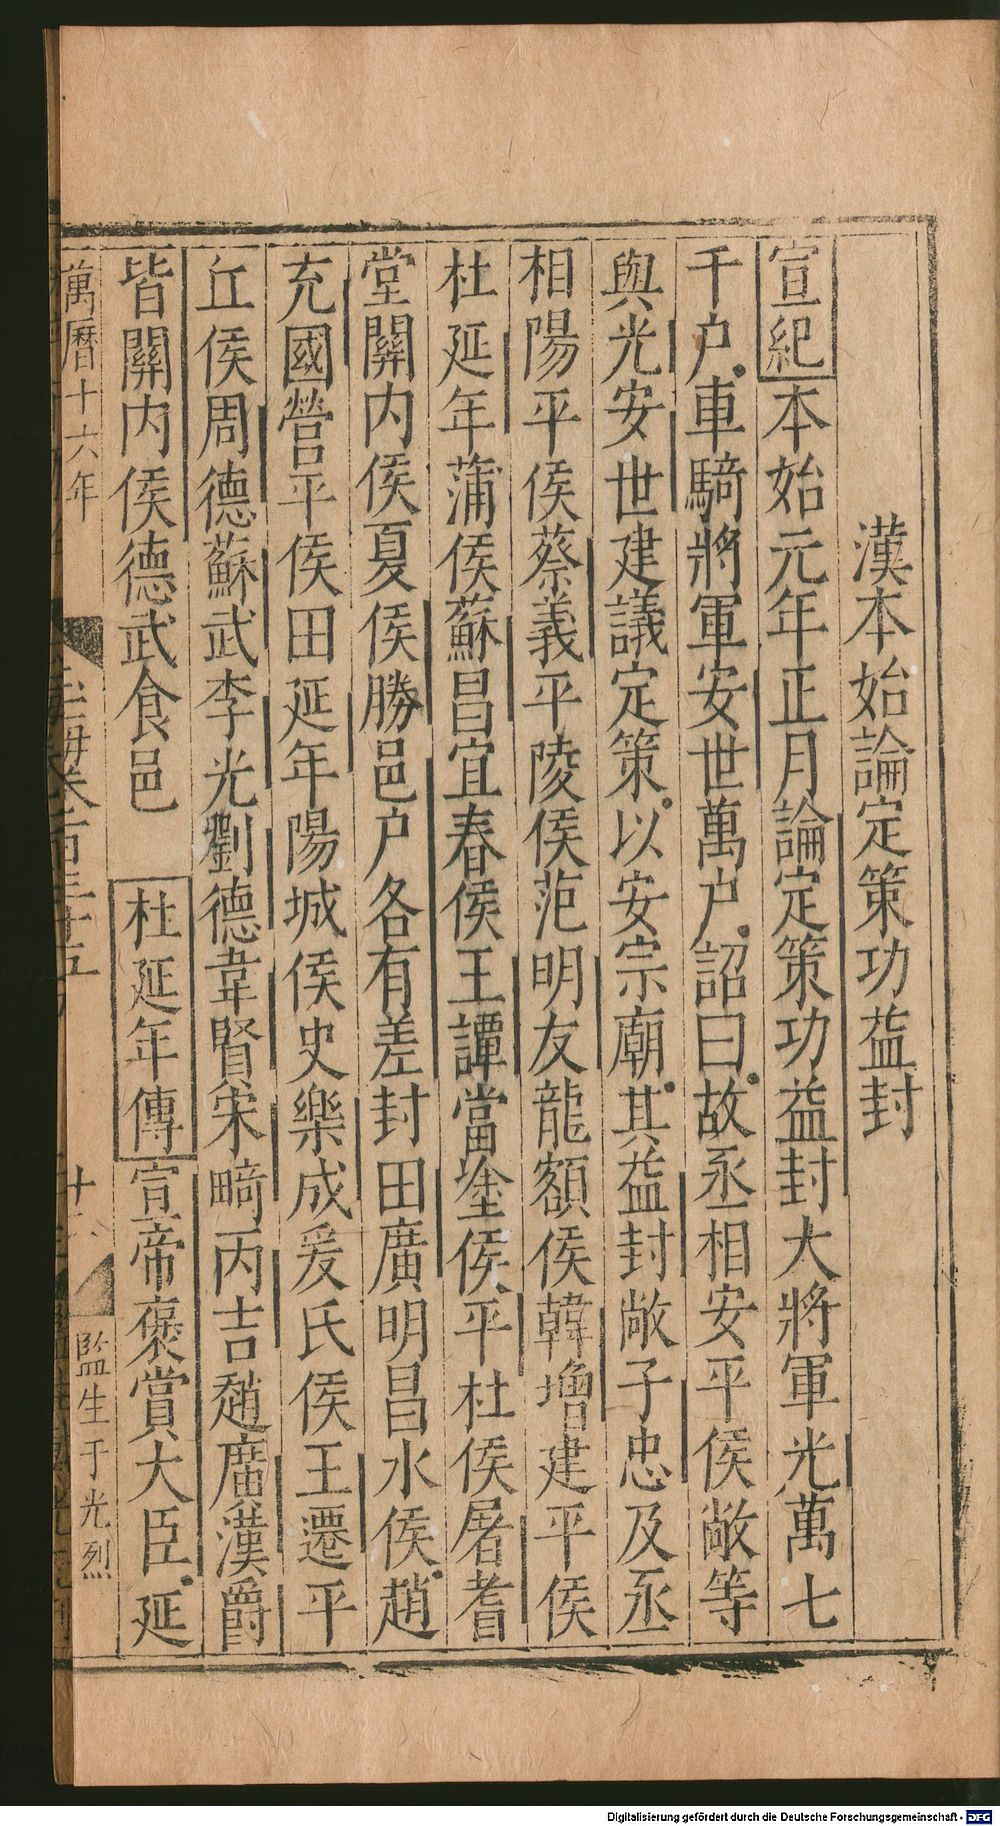 漢本始論定策功益封
宣紀本始元年正月論定策功益封大將軍光萬七
千户車騎將軍安世萬户詔曰故丞相安平侯敞等
與光安世建議定策以安宗廟其益封敞子忠及丞
相陽平侯蔡義平陵侯范明友龍額侯韓增建平侯
杜延年蒲侯蘇昌宜春侯王譚當塗侯平杜侯屠耆
堂關内侯夏侯勝邑户各有差封田廣明昌水侯趙
充國營平侯田延年陽城侯史樂成爰氏侯王遷平
丘侯周德蘇武李光劉德韋賢宋畸丙吉趙廣漢爵
皆關内侯德武食邑 杜延年傳宣帝褒賞大臣延
萬曆十六年 玉海卷一百三十五 十六 監生于光烈
Digitalisierung gefördert durch die Deutsche Forschungsgemeinschaft - DFG